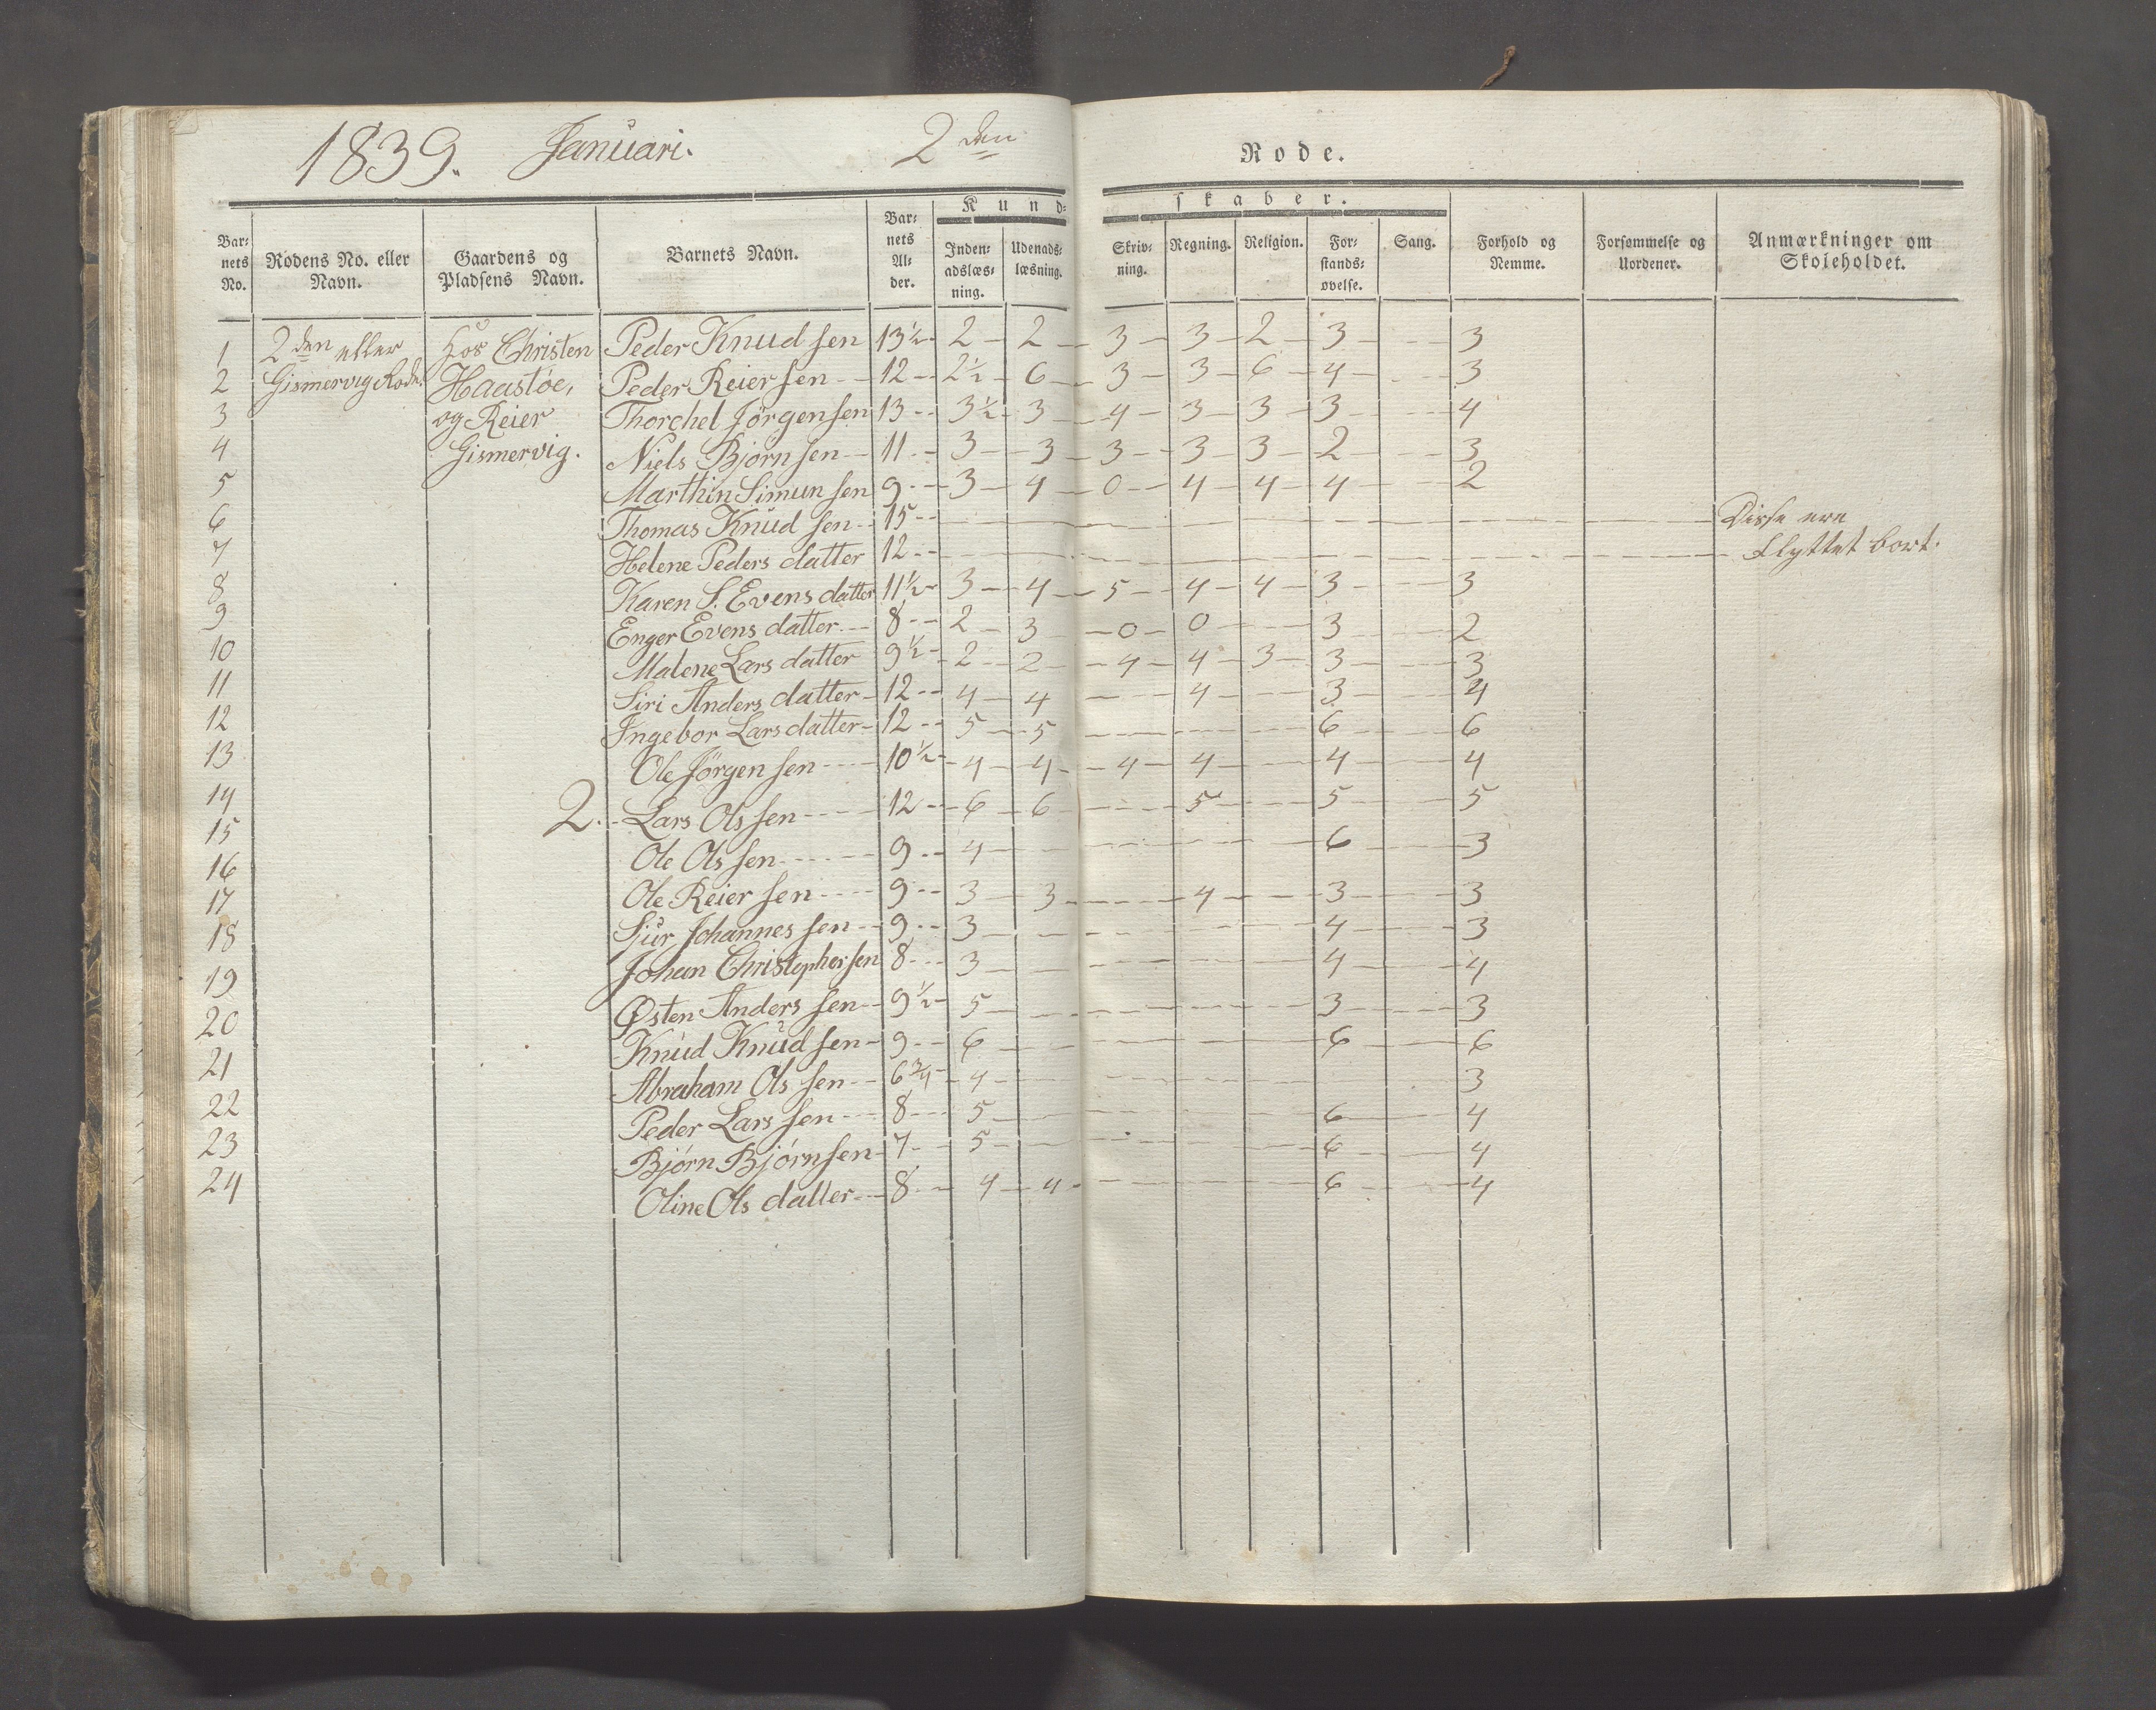 1839. Januari. 2den Rode.
Barnets No. | Rodens No. eller Navn. | Gaardens og Pladsens Navn. | Barnets Navn. | Barnets Alder. | Kundskaber. | Indenadslæsning. | Udenadslæsning. | Skrivning. | Regning. | Religion. | Forstandsøvelse. | Sang. | Forhold og Nemme. | Forsømmelse og Uordener. | Anmærkninger om Skoleholdet.
1 2den eller Hos Christen Peder Knudsen 13½ 2 2 3 3 2 3 3
2 Gismervig Rode. Haastøe, Peder Reiersen 12 2½ 6 3 3 6 4 3
3 og Reier Thorchel Jörgensen 13 3½ 3 4 3 3 3 4
4 Gismervig. Niels Bjørnsen 11 3 3 3 3 3 2 3
5 Marthin Simunsen 9 3 4 0 4 4 4 2
6 Thomas Knudsen 15 Disse ere
7 Helene Peders datter 12 flyttet bort.
8 Karen S. Evens datter 11½ 3 4 5 4 4 3 3
9 Enger Evens datter 8 2 3 0 0 3 2
10 Malene Lars datter 9½ 2 2 4 4 3 3 3
11 Siri Anders datter 12 4 4 4 3 4
12 Ingebor Lars datter 12 5 5 6 6
13 Ole Jörgensen 10½ 4 4 4 4 4 4
14 2. Lars Olssen 12 6 6 5 5 5
15 Ole Olssen 9 4 6 3
16 Ole Reiersen 9 3 3 4 3 3
17 Sjur Johannessen 9 3 4 3
18 Johan Christophersen 8 3 4 4
19 Østen Anderssen 9½ 5 3 3
20 Knud Knudsen 9 6 6 6
21 Abraham Olssen 6¾ 4 3
22 Peder Larssen 8 5 6 4
23 Bjørn Bjørnsen 7 5 6 4
24 Oline Ols datter 8 4 4 6 4